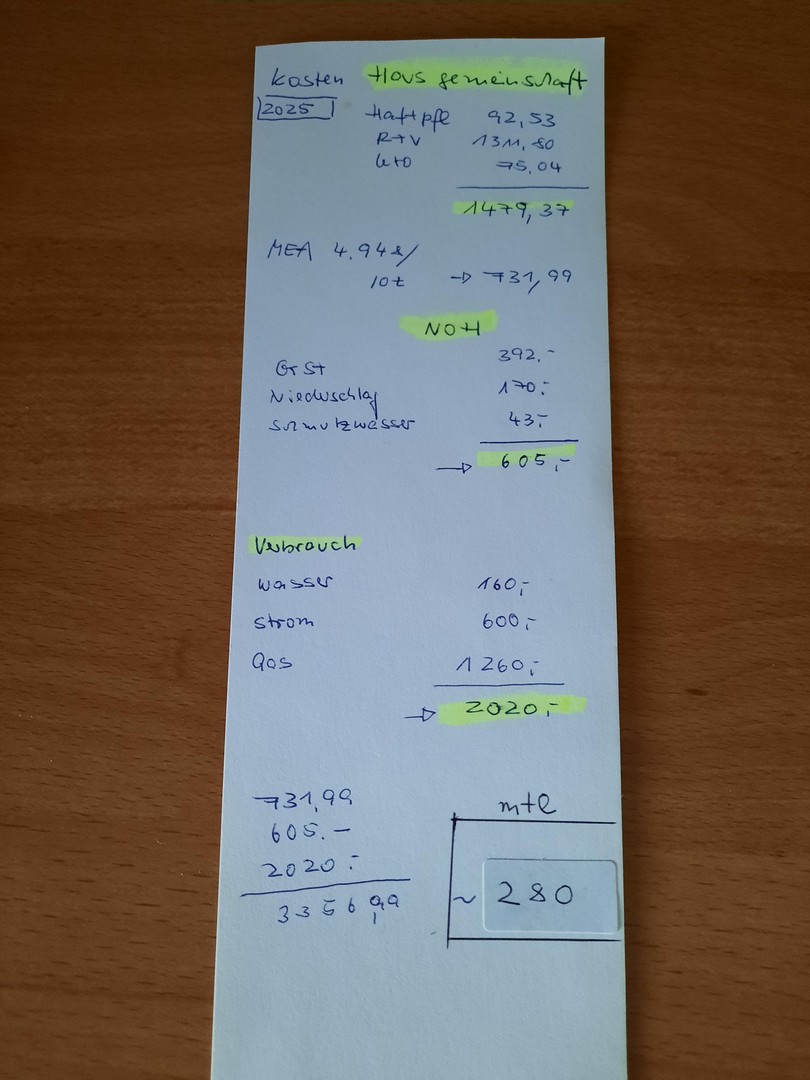 Kosten Hausgemeinschaft
2025
Haftpfl 92,53
R+V 1311,80
Kto 75,04
1479,37
MEA 4.948/
10t → 731,99
NOH
GrSt 392.-
Niederschlag 170.-
Schmutzwasser 43,-
→ 605,-
Verbrauch
Wasser 160,-
Strom 600,-
Gas 1260,-
→ 2020,-
731,99
605.-
2020.-
3356,99
mtl
~ 280